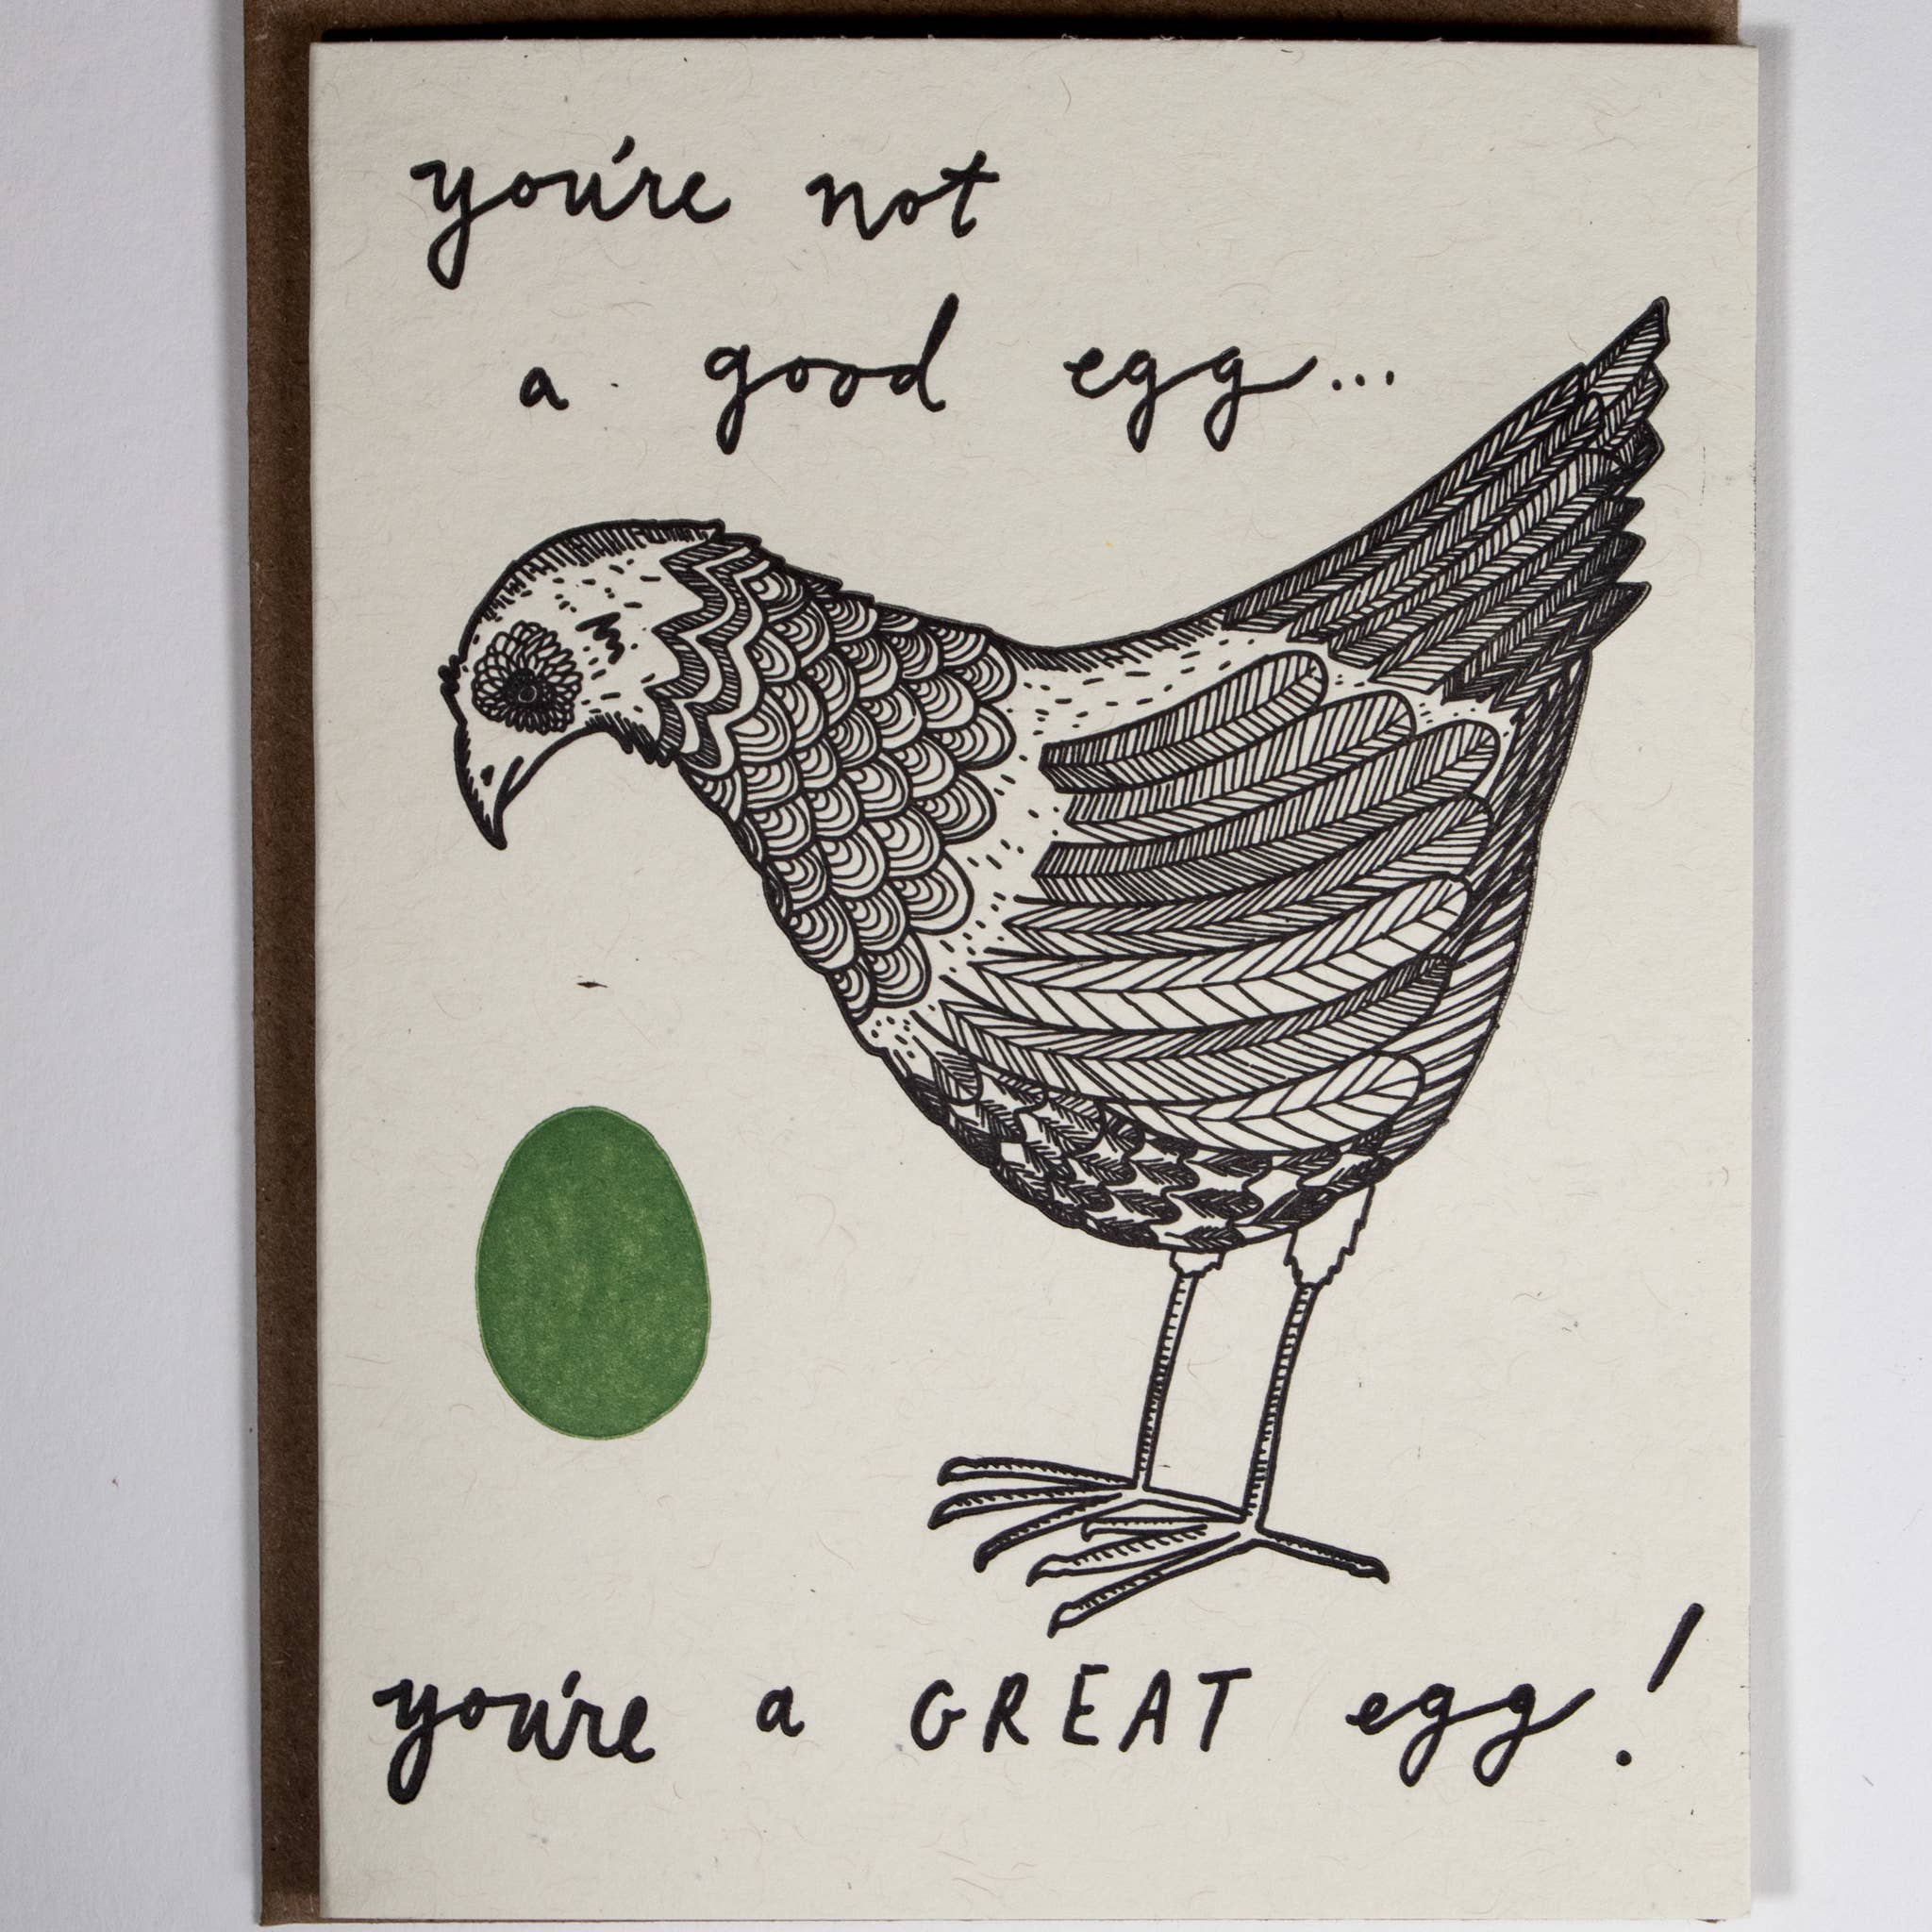 you're not
a good egg...
you're a GREAT egg!